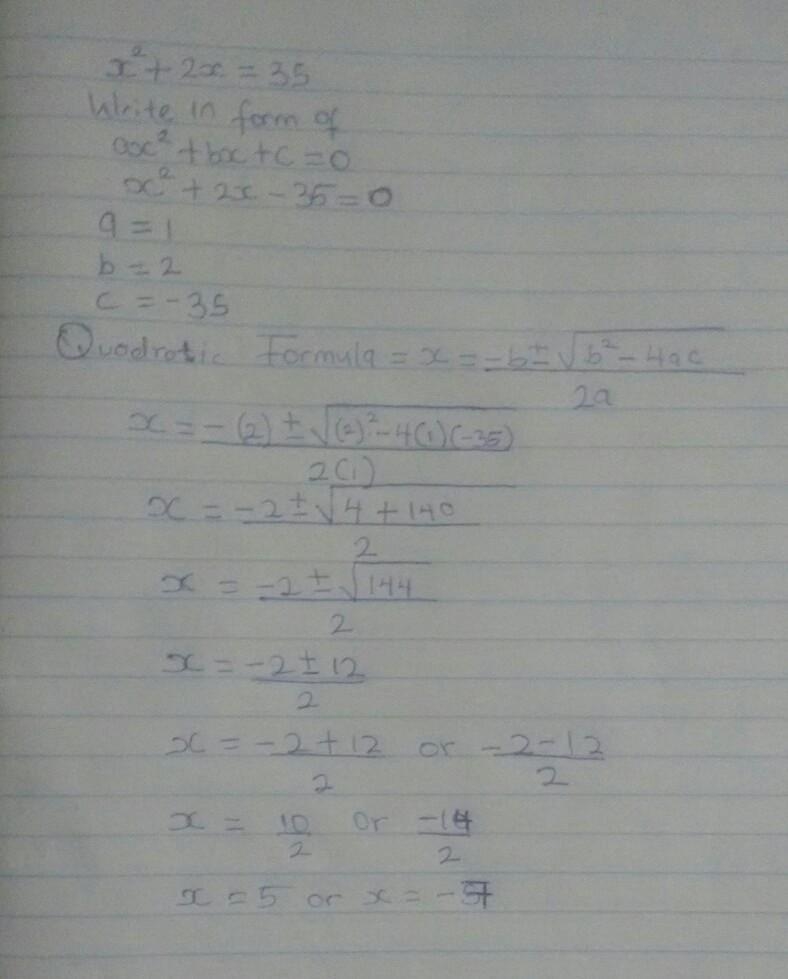 x² + 2x = 35
Write in form of
ax² + bx + c = 0
x² + 2x - 35 = 0
a = 1
b = 2
c = -35
Quadratic Formula = x = -b ± √b² - 4ac
2a
x = -(2) ± √(2)² - 4(1)(-35)
2(1)
x = -2 ± √4 + 140
2
x = -2 ± √144
2
x = -2 ± 12
2
x = -2 + 12 or -2 - 12
2 2
x = 10 or -14
2 2
x = 5 or x = -7